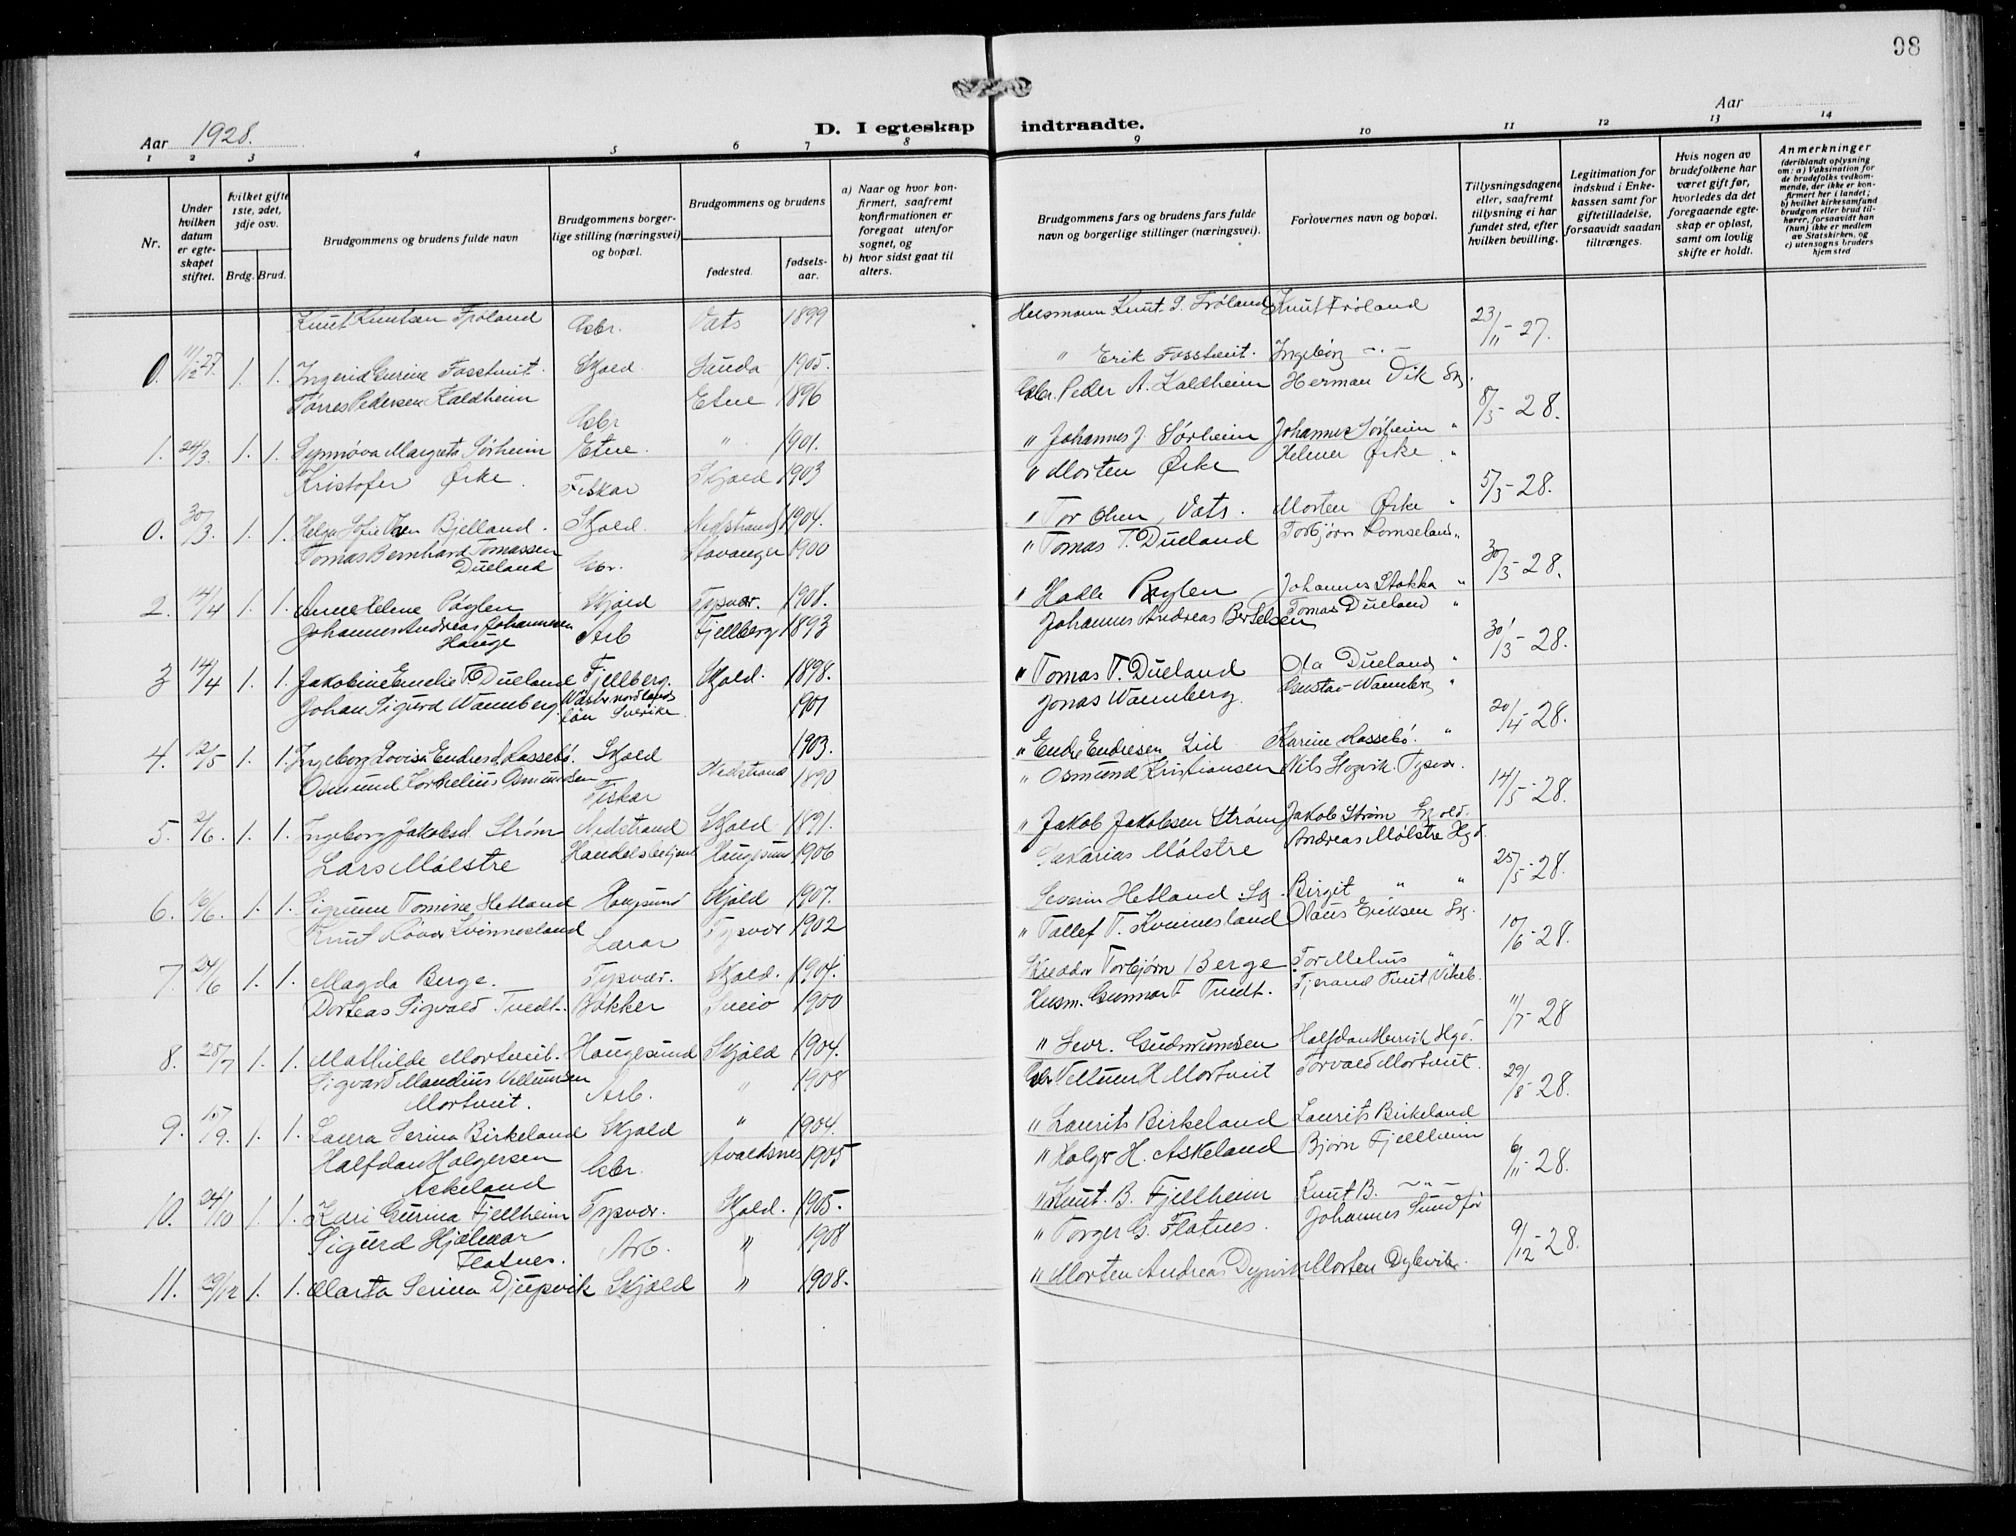 98
Aar 1928.
D. I egteskap indtraadte.
Aar
1 2 3 4 5 6 7 8 9 10 11 12 13 14
Nr.
Under hvilken datum er egteskapet stiftet.
hvilket gifte 1ste, 2det, 3dje osv.
Brdg. Brud.
Brudgommens og brudens fulde navn
Brudgommens borgerlige stilling (næringsvei) og bopæl.
Brudgommens og brudens
fødested.
fødselsaar.
a) Naar og hvor konfirmert, saafremt konfirmationen er foregaat utenfor sognet, og
b) hvor sidst gaat til alters.
Brudgommens fars og brudens fars fulde navn og borgerlige stillinger (næringsvei).
Forlovernes navn og bopæl.
Tillysningsdagene eller, saafremt tillysning ei har fundet sted, efter hvilken bevilling.
Legitimation for indskud i Enkekassen samt for giftetilladelse, forsaavidt saadan tiltrænges.
Hvis nogen av brudefolkene har været gift før, hvorledes da det foregaaende egteskap er opløst, samt om lovlig skifte er holdt.
Anmerkninger
(deriblandt oplysning om: a) Vaksination for de brudefolks vedkommende, der ikke er konfirmert her i landet; b) hvilket kirkesamfund brudgom eller brud tilhører, forsaavidt han (hun) ikke er medlem av Statskirken, og c) utensogns bruders hjemsted
Knut Knutsen Frøland Gbr. Vats 1899 Husmann Knut P. Frøland Knut Frøland 23/11-27.
0. 11/12 27. 1. 1. Ingerid Gurine Fosstveit. Skjold. Sauda 1905. " Erik Fosstveit. Ingeborg -"-
Torres Pedersen Kaldheim Gbr Etne 1896 Gbr. Peder A. Kaldheim Herman Vik Sg. 8/3-28.
1. 24/3. 1. 1. Synnøva Margreta Sørheim Etne. " 1901. " Johannes J. Sørheim Johannes Sørheim "
Kristofer Ørke. Fiskar Skjold 1903 " Morten Ørke Helmer Ørke " 5/3-28.
0. 30/3. 1. 1. Helga Sofie Olsen Bjelland. Skjold. Nedstrand 1904. " Tor Olsen Vats. Morten Ørke "
Tomas Bernhard Tomassen Dueland Gbr. Stavanger 1900 " Tomas T. Dueland Torbjørn Romseland " 30/3-28.
2. 14/4 1. 1. Anne Helene Pøylen Skjold Tysvær. 1908. " Halle Pøylen Johannes Stakka "
Johannes Andreas Johannesen Hauge Arb Fjellberg 1893 Johannes Andreas Bertelsen Tomas Dueland " 30/3-28.
3 14/4 1. 1. Jakobine Emelie T. Dueland Fjellberg. Skjold. 1898. " Tomas T. Dueland Ola Dueland "
Johan Sigurd Wannberg. Västernorrlands län Sverike 1901 Jonas Wannberg. Gustav Wannberg " 20/4-28.
4. 12/5 1. 1. Ingeborg Lovisa Endresd. Lassebø. Skjold 1903. " Endre Endresen Lid Karine Lassebø. "
Osmund Kornelius Osmundsen Fiskar Nedstrand 1890 " Osmund Kristiansen Nils Hogvik. Tysvær. 14/5-28.
5. 2/6. 1. 1. Ingeborg Jakobsd Strøm Nedstrand Skjold 1891. " Jakob Jakobsen Strøm Jakob Strøm Skjold.
Lars Mølstre Handelsbetjent Haugesund 1906 Sakarias Mølstre Andreas Mølstre Hgd. 25/5-28.
6. 16/6. 1. 1. Sigrunn Tomine Hetland Haugesund Skjold 1907. Severin Hetland Sg. Birgit " "
Knut Røvær Kvinnesland Lærar Tysvær 1902 " Tallef T. Kvinnesland Olaus Eriksen Sg. 10/6-28.
7. 24/6 1. 1. Magda Berge. Tysvær. Skjold. 1904. Skredder Torbjørn Berge Tor Melhus "
Dorteas Sigvald Tvedt. Bøkker Sveio 1900 Husm. Gunnar T. Tvedt. Fjerand Tvedt Vikeb. 11/7-28
8. 28/7 1. 1. Mathilde Mortveit. Haugesund Skjold 1904. " Sevr. Gudmundsen Halfdan Henrik Hgd.
Sigvard Maudius Villumsen Mortveit. Arb. " 1908 Gbr Villum H Mortveit Torvald Mortveit. 29/8-28.
9. 15/9. 1. 1. Laura Serina Birkeland Skjold " 1904. " Laurits Birkeland Laurits Birkeland
Halfdan Holgersen Askeland Gbr. Avaldsnes 1905 " Holger H. Askeland Bjørn Fjellheim 6/11-28.
10. 24/10 1. 1. Kari Gurina Fjellheim Tysvær. Skjold. 1905. " Knut. B. Fjellheim Knut B. -"-
Sigurd Hjalmar Flatnes. Arb. " 1908 " Torger G. Flatnes. Johannes Sundfør 9/12-28.
11. 29/12 1. 1. Marta Serina Djupvik Skjold " 1908. " Morten Andreas Dypvik Morten Dybvik.